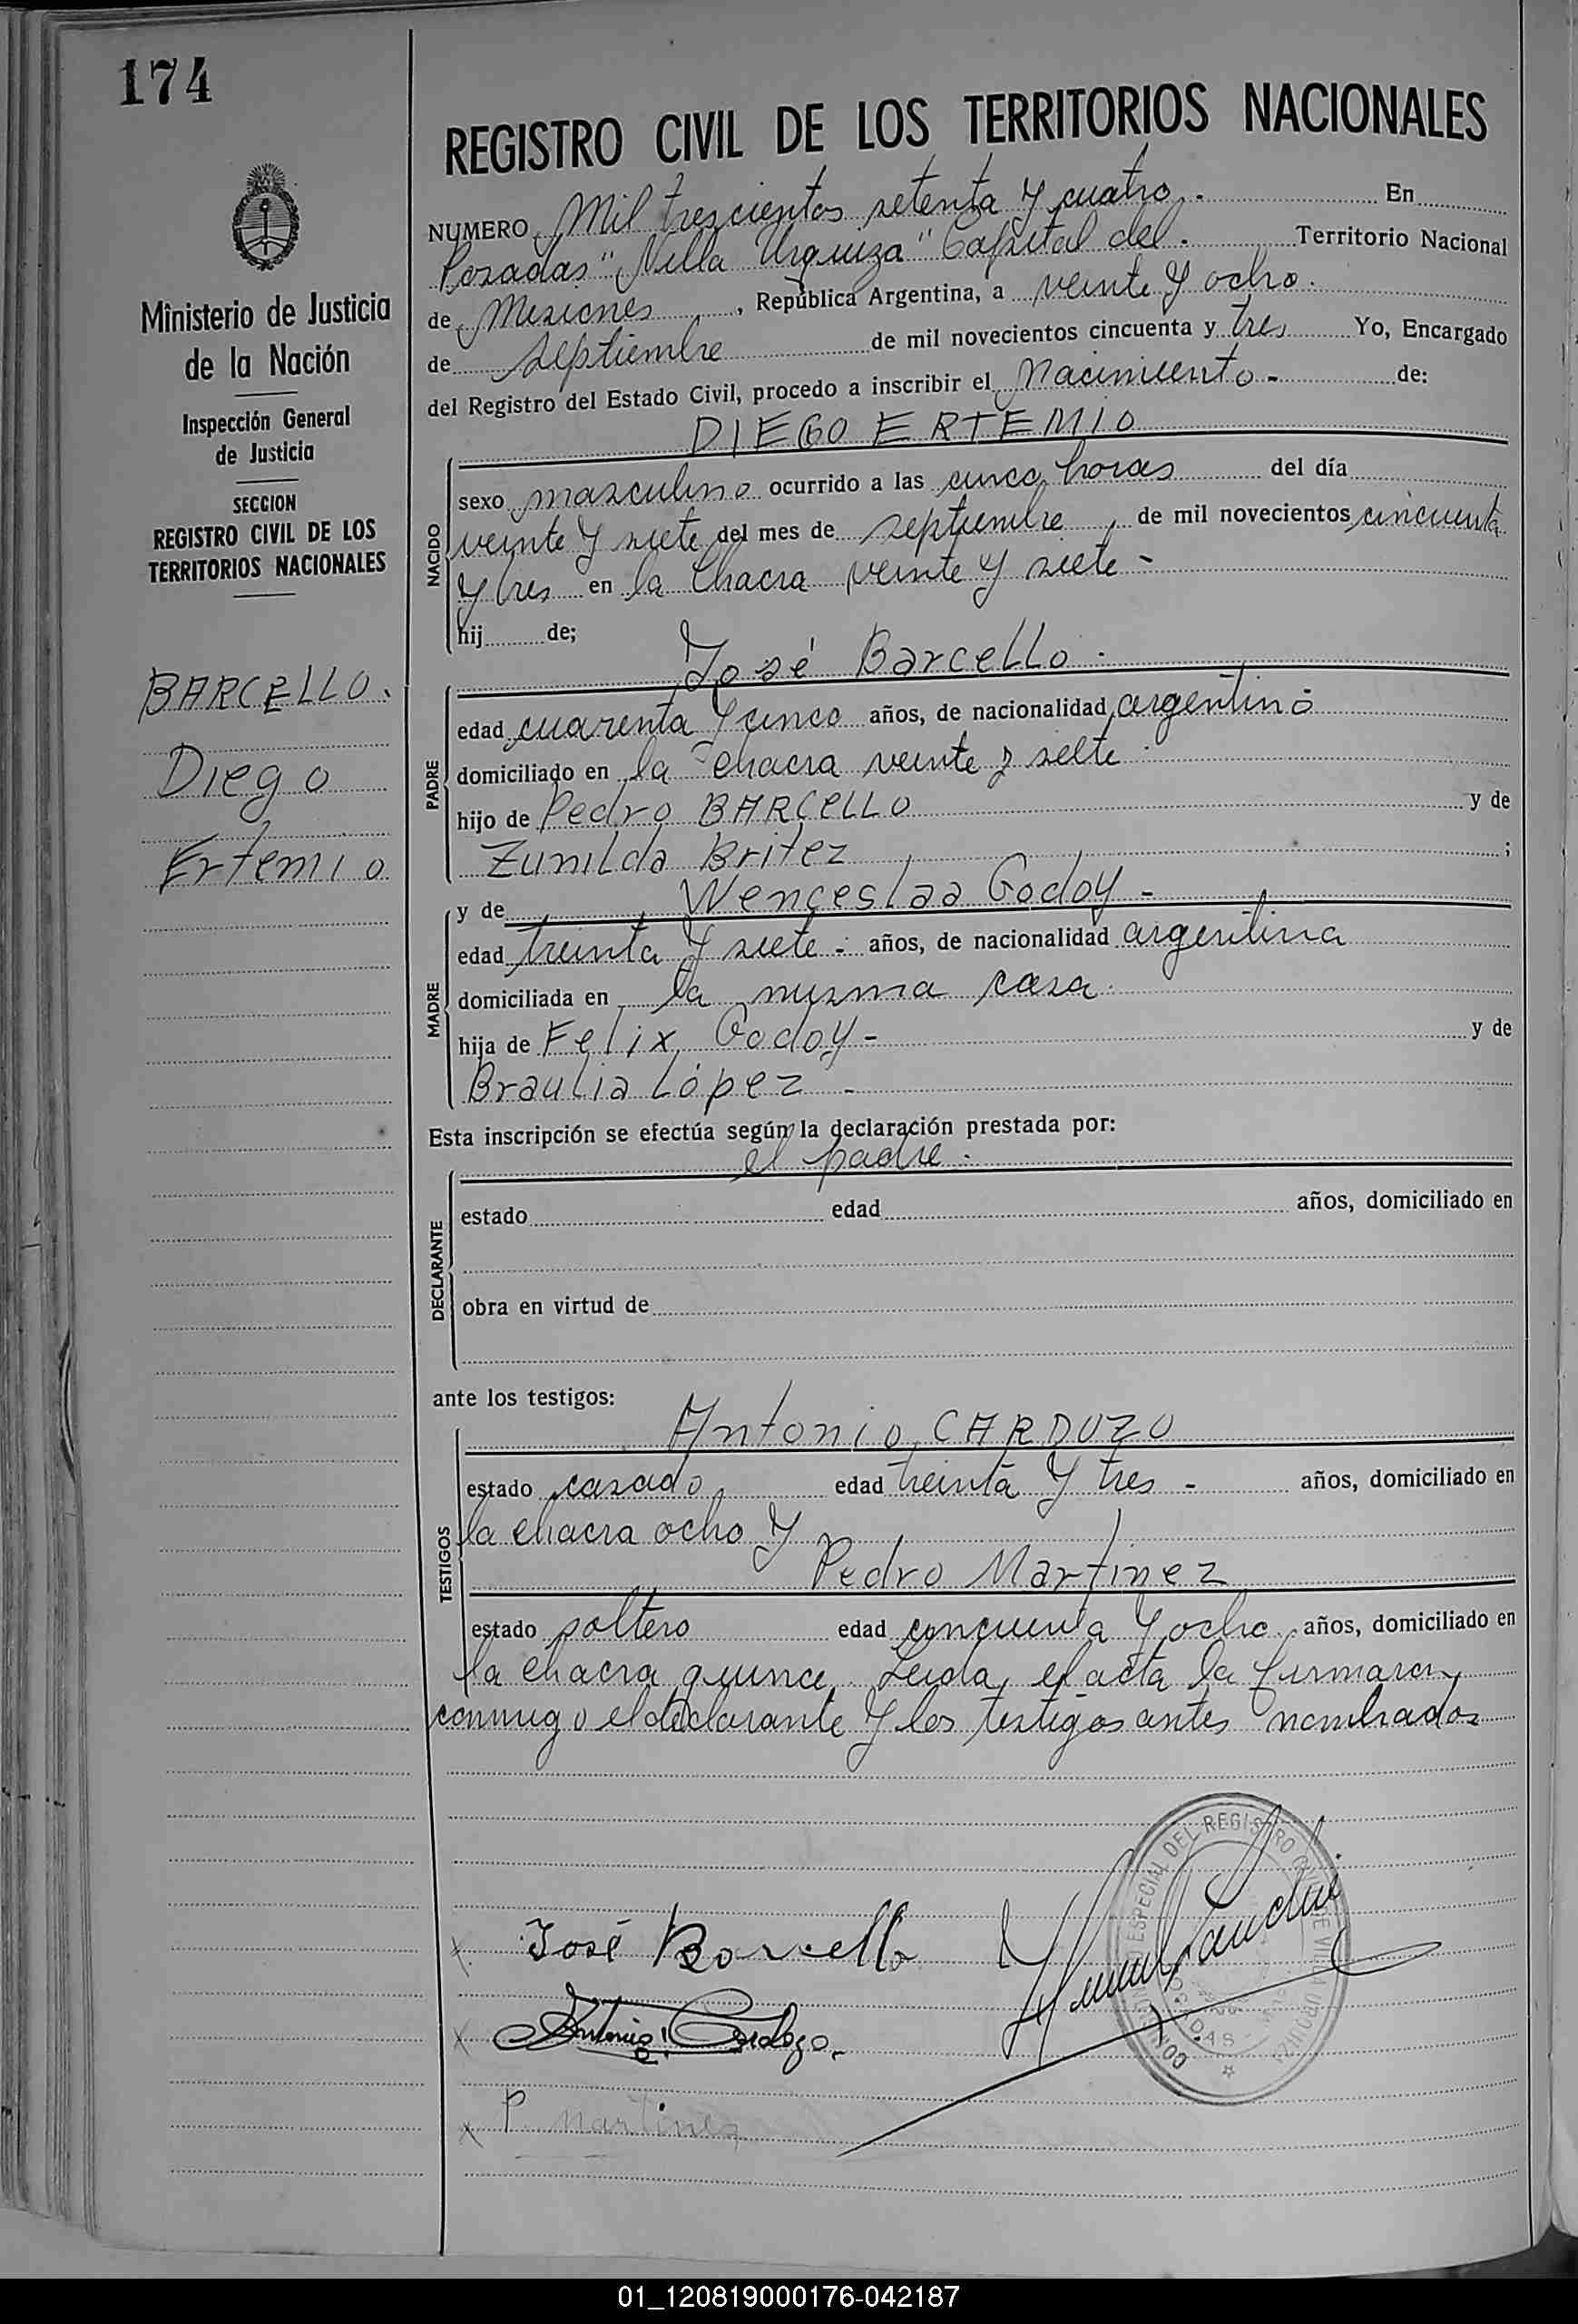 174
Ministerio de Justicia
de la Nación
Inspección General
de Justicia
SECCION
REGISTRO CIVIL DE LOS
TERRITORIOS NACIONALES
BARCELLO.
Diego
Ertemio
REGISTRO CIVIL DE LOS TERRITORIOS NACIONALES
NUMERO Mil trescientos setenta y cuatro. En
Posadas "Villa Urquiza" Capital del. Territorio Nacional
de Misiones, República Argentina, a veinte y ocho.
de septiembre de mil novecientos cincuenta y tres Yo, Encargado
del Registro del Estado Civil, procedo a inscribir el Nacimiento - de:
DIEGO ERTEMIO
NACIDO
sexo masculino ocurrido a las cinco horas del día
veinte y siete del mes de septiembre, de mil novecientos cincuenta
y tres en la chacra veinte y siete -
hij de;
José Barcello.
PADRE
edad cuarenta y cinco años, de nacionalidad argentino
domiciliado en la chacra veinte y siete.
hijo de Pedro BARCELLO y de
Zunilda Britez ;
y de Wenceslaa Godoy -
MADRE
edad treinta y siete - años, de nacionalidad argentina
domiciliada en la misma casa.
hija de Felix Godoy - y de
Braulia López -
Esta inscripción se efectúa según la declaración prestada por:
el padre.
DECLARANTE
estado edad años, domiciliado en
obra en virtud de
ante los testigos:
Antonio CARDOZO
TESTIGOS
estado casado edad treinta y tres - años, domiciliado en
la chacra ocho y
Pedro Martinez
estado soltero edad concuenta y ocho. años, domiciliado en
la chacra quince. Leida el acta la firmaron
conmigo el declarante y los testigos antes nombrados
DEL REGISTRO CIVIL DE VILLA URQUIZA
José Barcello
Antonio Cardozo.
P. Martinez
01_120819000176-042187